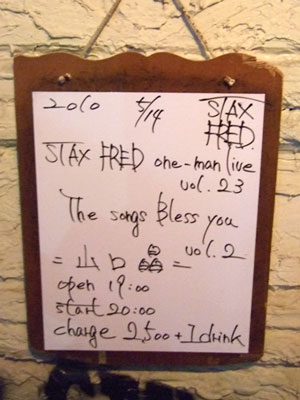 2010 5/14 STAX FRED.
STAX FRED one-man live
vol. 23
The songs Bless you
vol. 2
= 山口晶 =
open 19:00
start 20:00
charge 2,500+1drink